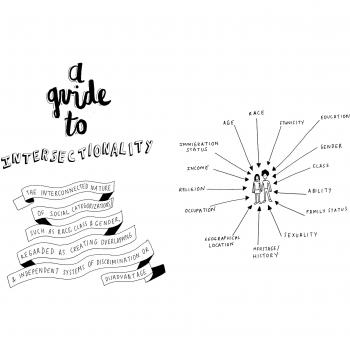 a
guide
to
INTERSECTIONALITY
THE INTERCONNECTED NATURE
OF SOCIAL CATEGORIZATIONS
SUCH AS RACE, CLASS & GENDER,
REGARDED AS CREATING OVERLAPPING
& INDEPENDENT SYSTEMS OF DISCRIMINATION OR
DISADVANTAGE
RACE
AGE
ETHNICITY
EDUCATION
IMMIGRATION
STATUS
GENDER
INCOME
CLASS
RELIGION
ABILITY
OCCUPATION
FAMILY STATUS
GEOGRAPHICAL
LOCATION
SEXUALITY
HERITAGE/
HISTORY